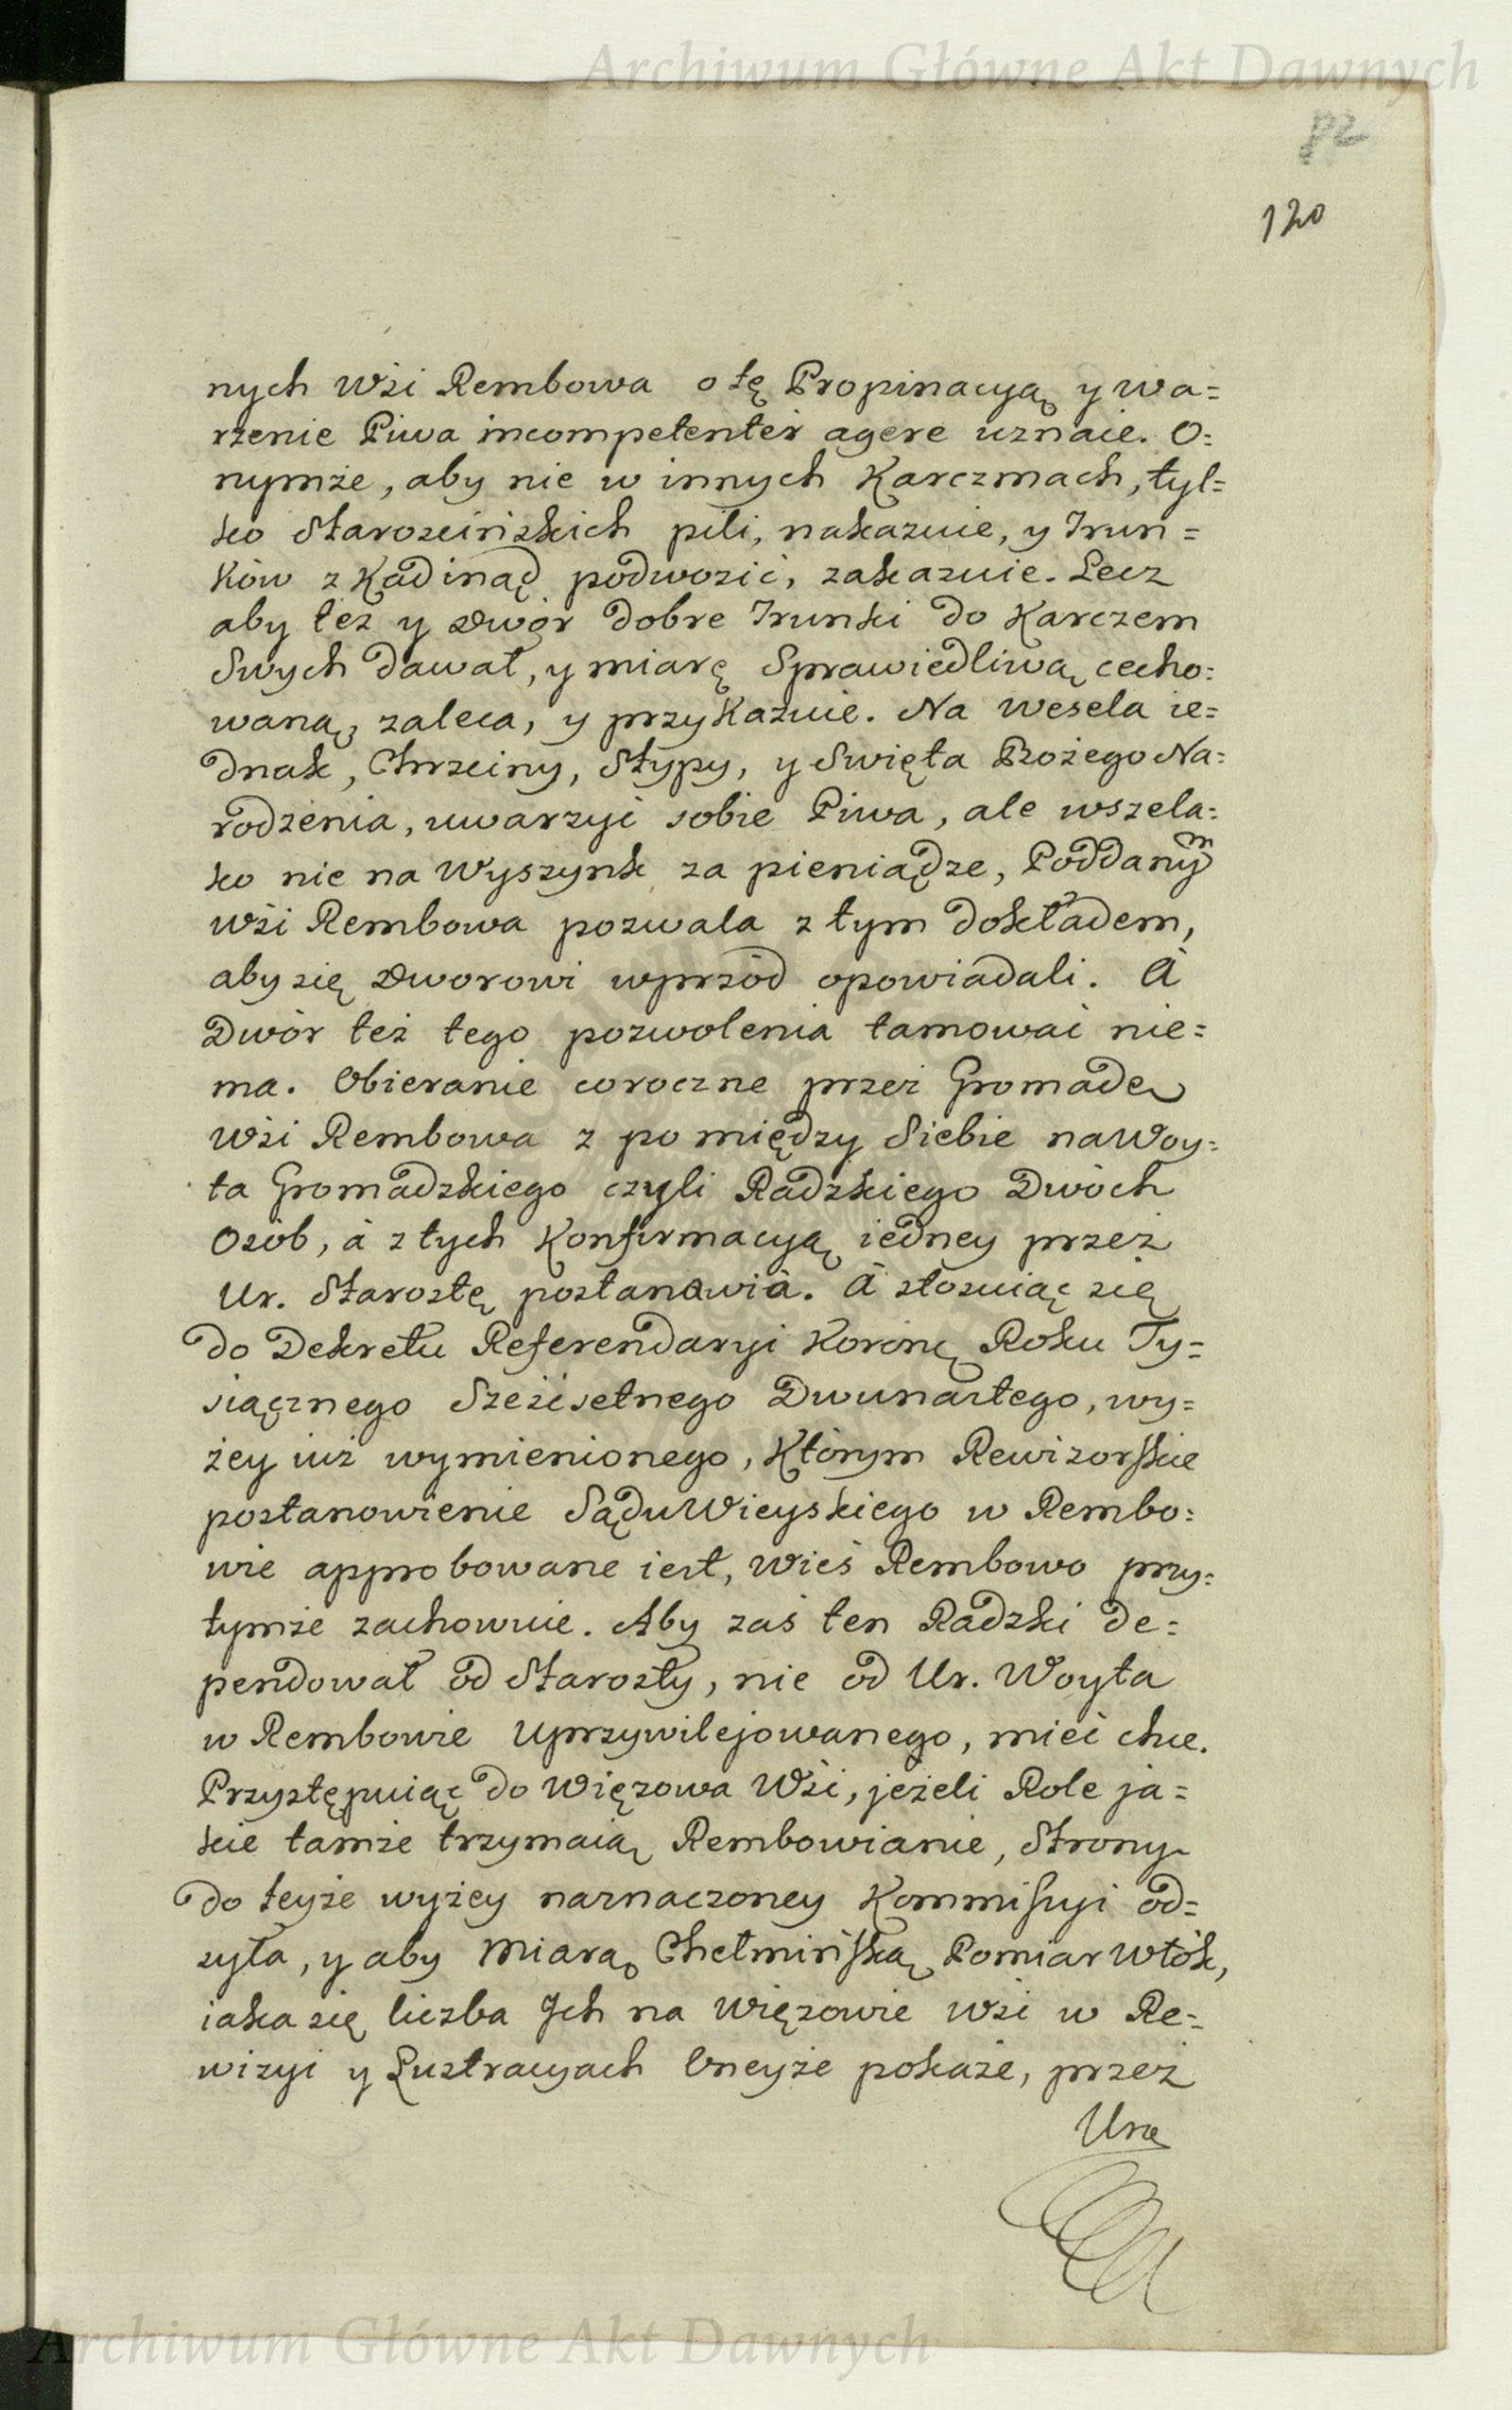 Archiwum Główne Akt Dawnych
82
120
nych Wśi Rembowa o tę Propinacyą y wa=
rzenie Piwa incompetenter agere uznaie. O=
nymże, aby nie w innych Karczmach, tyl=
ko Starościńskich pili, nakazuie, y Trun=
ków z kądinąd podwozić, zakazuie. Lecz
aby też y Dwór dobre Trunki do Karczem
Swych dawał, y miarę Sprawiedliwą cecho=
waną, zaleca, y przykazuie. Na Wesela ie=
dnak, Chrzciny, Stypy, y Swięta Bożego Na=
rodzenia, uwarzyć sobie Piwa, ale wszela=
ko nie na Wyszynk za pieniądze, Poddanym
wśi Rembowa pozwala z tym dokładem,
aby się Dworowi wprzód opowiadali. A
Dwór też tego pozwolenia tamować nie=
ma. Obieranie coroczne przez Gromadę
Wśi Rembowa z pomiędzy Siebie na Woy=
ta Gromadzkiego czyli Radzkiego Dwóch
Osób, à z tych Konfirmacyą iedney przez
Ur. Starostę postanawia. A stosuiąc się
do Dekretu Referendaryi Koronę Roku Ty=
siącznego Sześćsetnego Dwunastego, wy=
żey iuż wymienionego, którym Rewizorskie
postanowienie Sądu Wieyskiego w Rembo=
wie approbowane iest, Wieś Rembowo przy=
tymże zachowuie. Aby zaś ten Radzki de=
pendował od Starosty, nie od Ur. Woyta
w Rembowie Uprzywilejowanego, mieć chce.
Przystępuiąc do Więzowa Wśi, jeżeli Role ja=
kie tamże trzymaią Rembowianie, Strony
do teyże wyżey naznaczoney Kommissyi od=
syła, y aby Miarą Chełmińską Pomiar Włók,
iaka się liczba Ich na Więzowie wśi w Re=
wizyi y Lustracyach Oneyże pokaże, przez
Urę
Archiwum Główne Akt Dawnych